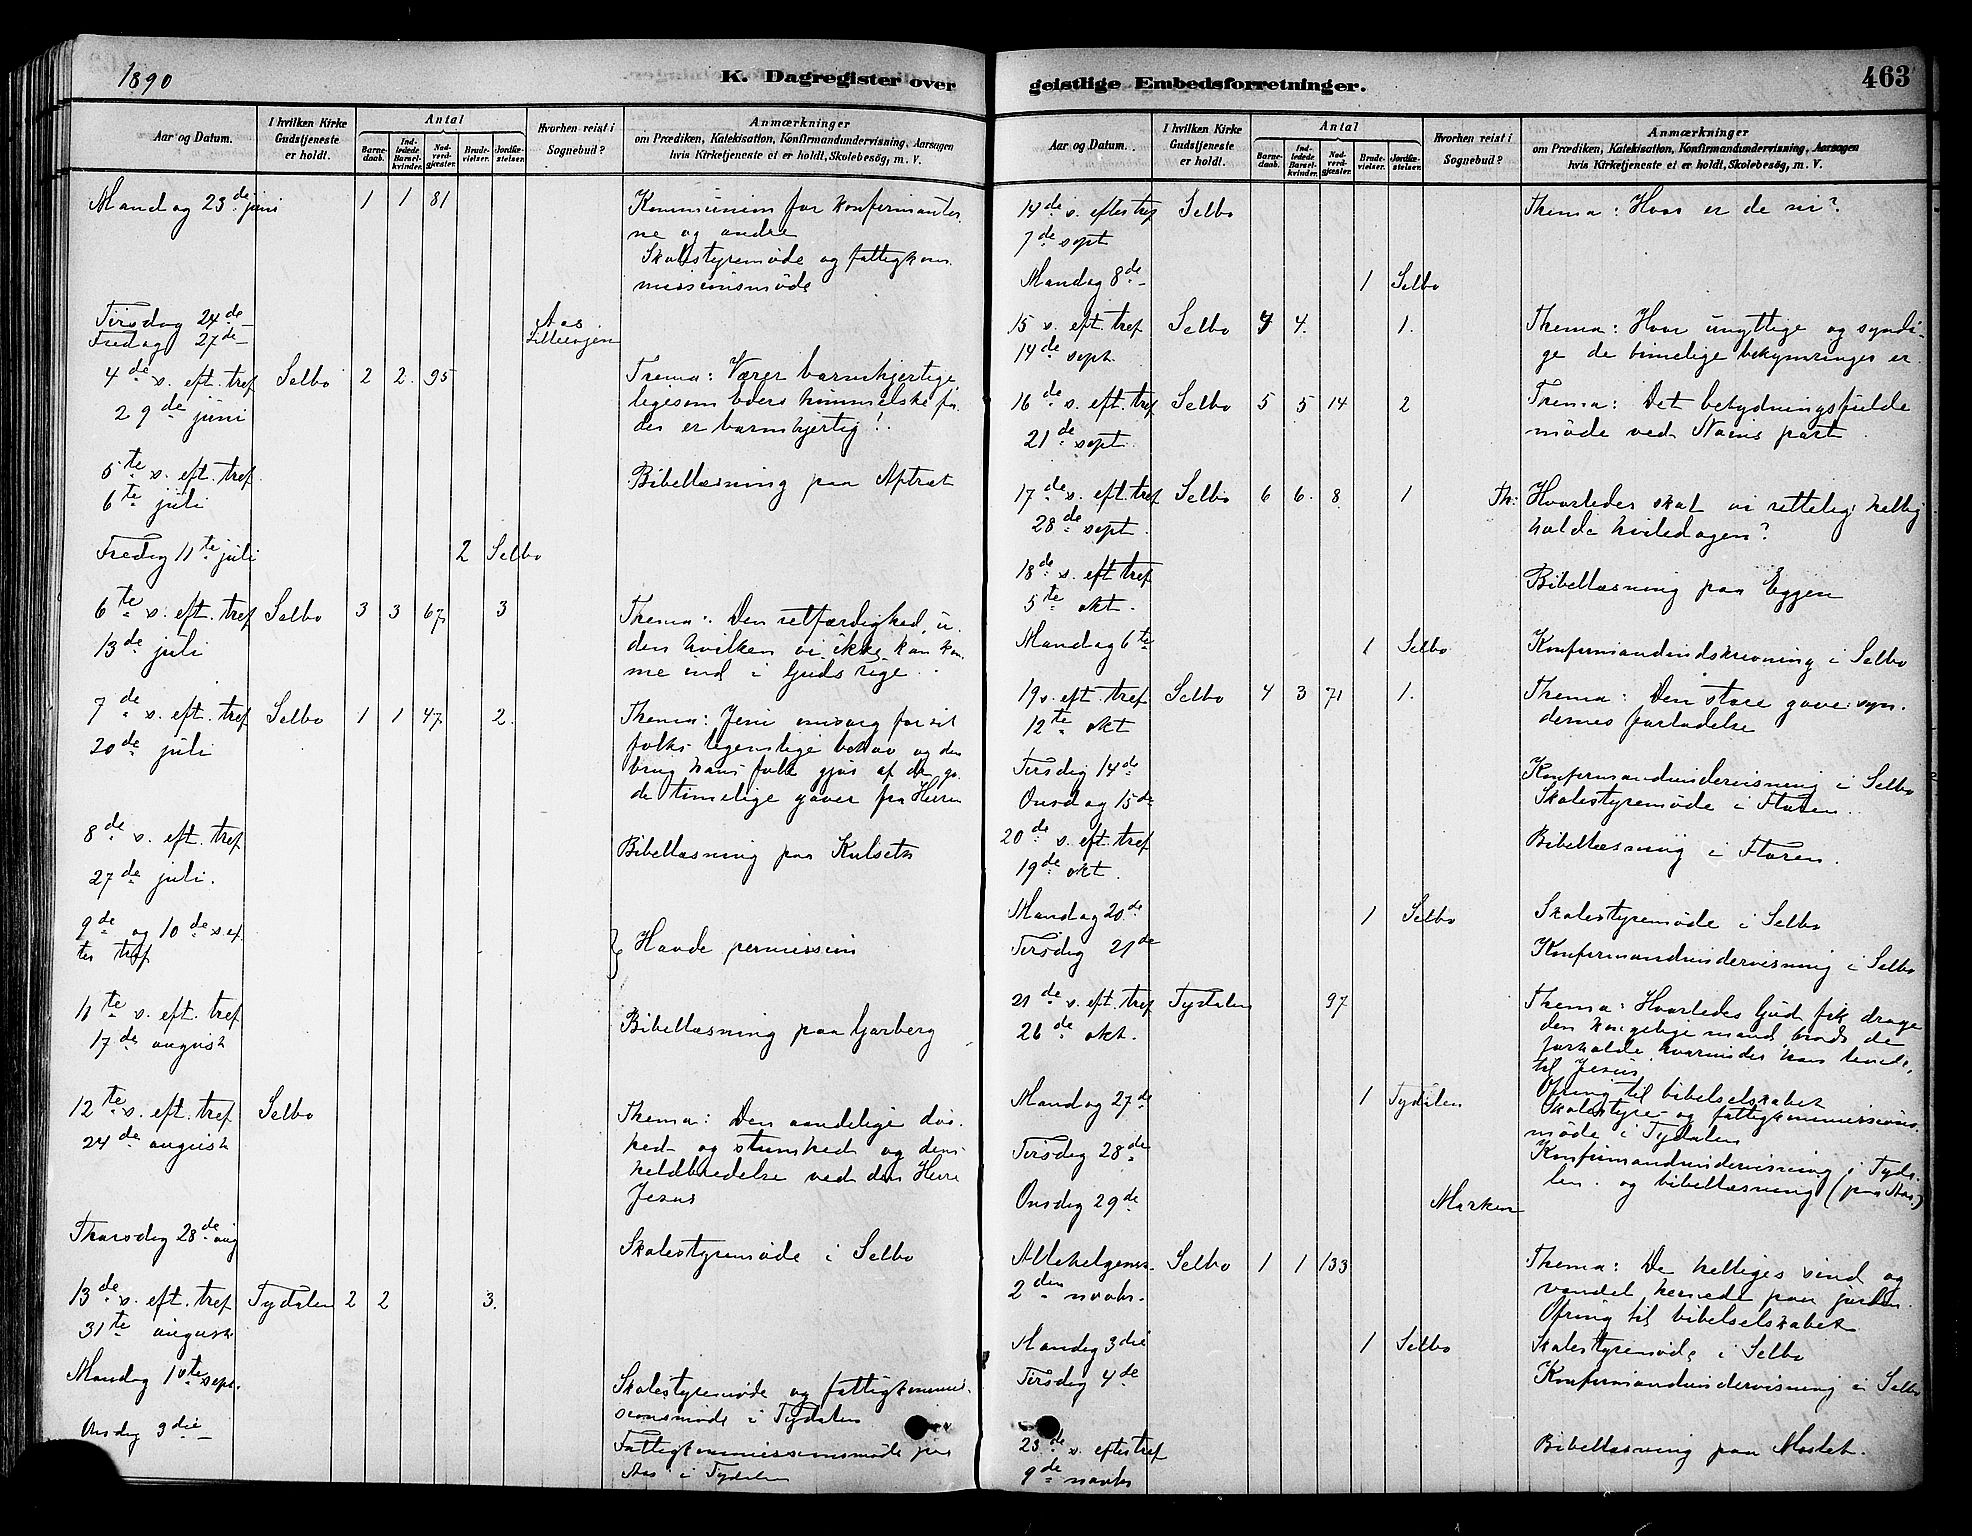 1890
K. Dagregister over
geistlige Embedsforretninger.
463
Aar og Datum.
I hvilken Kirke Gudstjeneste er holdt.
Antal
Barnedaab.
Indledede Barselkvinder.
Nadverdgjæster.
Brudevielser.
Jordfæstelser.
Hvorhen reist i Sognebud?
Anmærkninger
om Prædiken, Katekisation, Konfirmandundervisning, Aarsagen
hvis Kirketjeneste ei er holdt, Skolebesøg, m. V.
Mandag 23de juni 1 1 81 Kommunion for konfirmanter
ne og andre
Skolestyremøde og fattigkom
missionsmøde
Tirsdag 24de Aas
Fredag 27de
4de s. eft. tref Selbo 2 2. 95 Trema: Værer barmhjertige,
29de juni ligesom eders himmelske fa
der er barmhjertig!
5te s. eft. tref. Bibellæsning paa Aptrøt
6te juli
Fredag 11te juli 2 Selbo
6te s. eft. tref Selbo 3 3 67 3 Thema: Den retfærdighed, u.
13de juli den hvilken vi ikke kan kom
me ind i Guds rige.
7de s. eft. tref Selbo 1 1 47 2. Thema: Jesu omsorg for sit
20de juli folks legemslige behov og den
brug hans folk gjør af de go
de timelige gaver fra Herren
8de s. eft. tref Bibellæsning paa Kulseth
27de juli.
9de og 10de s ef. Havde permission
ter tref
11te s. eft. tref Bibellæsning paa Garberg
17de august
12te s. eft. tref Selbo Thema: Den aandelige døv
24de august hed og stumhed og dens
helbredelse ved den Herre
Jesus
Thorsdag 28de aug Skolestyremøde i Selbo
13de s. eft. tref Tydalen 2 2 3.
31te august
Mandag 1ste sept. Skolestyremøde og fattigkommis
sionsmøde i Tydalen
Onsdag 3die Fattigkommissionsmøde paa
Aas i Tydalen
Aar og Datum.
I hvilken Kirke Gudstjeneste er holdt.
Antal
Barnedaab.
Indledede Barselkvinder.
Nadverdgjæster.
Brudevielser.
Jordfæstelser.
Hvorhen reist i Sognebud?
Anmærkninger
om Prædiken, Katekisation, Konfirmandundervisning, Aarsagen
hvis Kirketjeneste ei er holdt, Skolebesøg, m. V.
14de s. efter tref Selbo Thema: Hvor er de ni?
7de sept
Mandag 8de 1 Selbo
15 s. eft. tref Selbo 4 4. 1. Thema: Hvor unyttige og syndi
14de sept. ge de timelige bekymringer er
16de s. eft. tref Selbo 5 5 14 2 Trema: Det betydningsfulde
21de sept. møde ved Nains port
17de s. eft tref Selbo 6 6. 8 1 Th: Hvorledes skal vi rettelig hellig
28de sept. holde hviledagen?
18de s. eft tref Bibellæsning paa Eggen
5te okt.
Mandag 6te 1 Selbo Konfirmandindskrivning i Selbo
19 s. eft. tref Selbo 4 3 71 1. Thema: Den store gave: syn
12te okt dernes forladelse
Tirsdag 14de Konfirmandundervisning i Selbo
Onsdag 15de Skolestyremøde i Floren.
20de s. eft. tref Bibellæsning i Floren.
19de okt.
Mandag 20de 1 Selbo Skolestyremøde i Selbo
Tirsdag 21de Konfirmandundervisning i Selbo
21de s. eft. tref Tydalen 97 Thema: Hvorledes Gud fik drage
26de okt. den kongelige mand, trods de
forholde, hvorunder han levede,
til Jesus
Ofring til bibelselskabet
Mandag 27de 1 Tydalen Skolestyre- og fattigkommissions
møde i Tydalen
Tirsdag 28de Konfirmandundervisning i Tyda
len. og bibellæsning (paa Aas)
Onsdag 29de Morken
Allehelgenss. Selbo 1 1 133 Thema: De helliges sind og
2den novbr. vandel hernede paa jorden.
Ofring til bibelselskabet
Mandag 3die 1 Selbo Skolestyremøde i Selbo
Tirsdag 4de Konfirmandundervisning i Selbo
23de s. efter tref Bibellæsning paa Moslet.
9de novbr